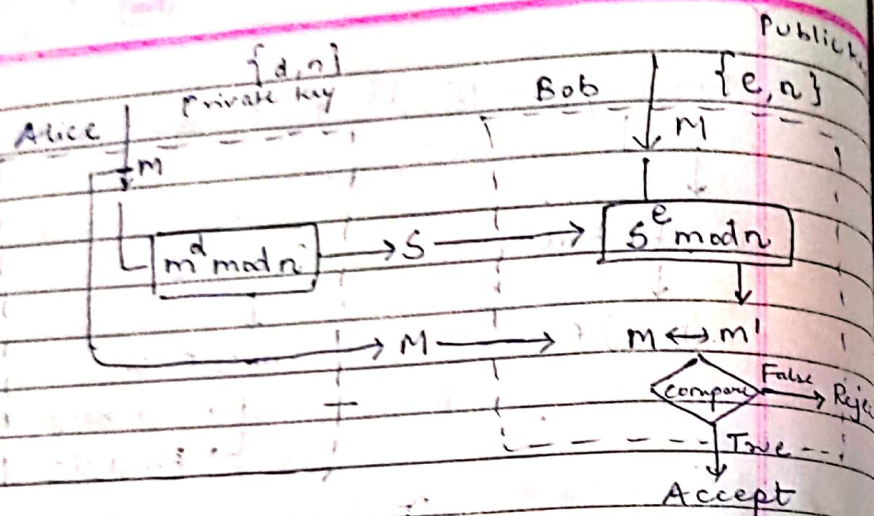 Public
{d,n}
Private key
Bob
{e,n}
Alice
M
M
m^d mod n
S
S^e mod n
M
m ↔ m'
compare
False
Reje
True
Accept